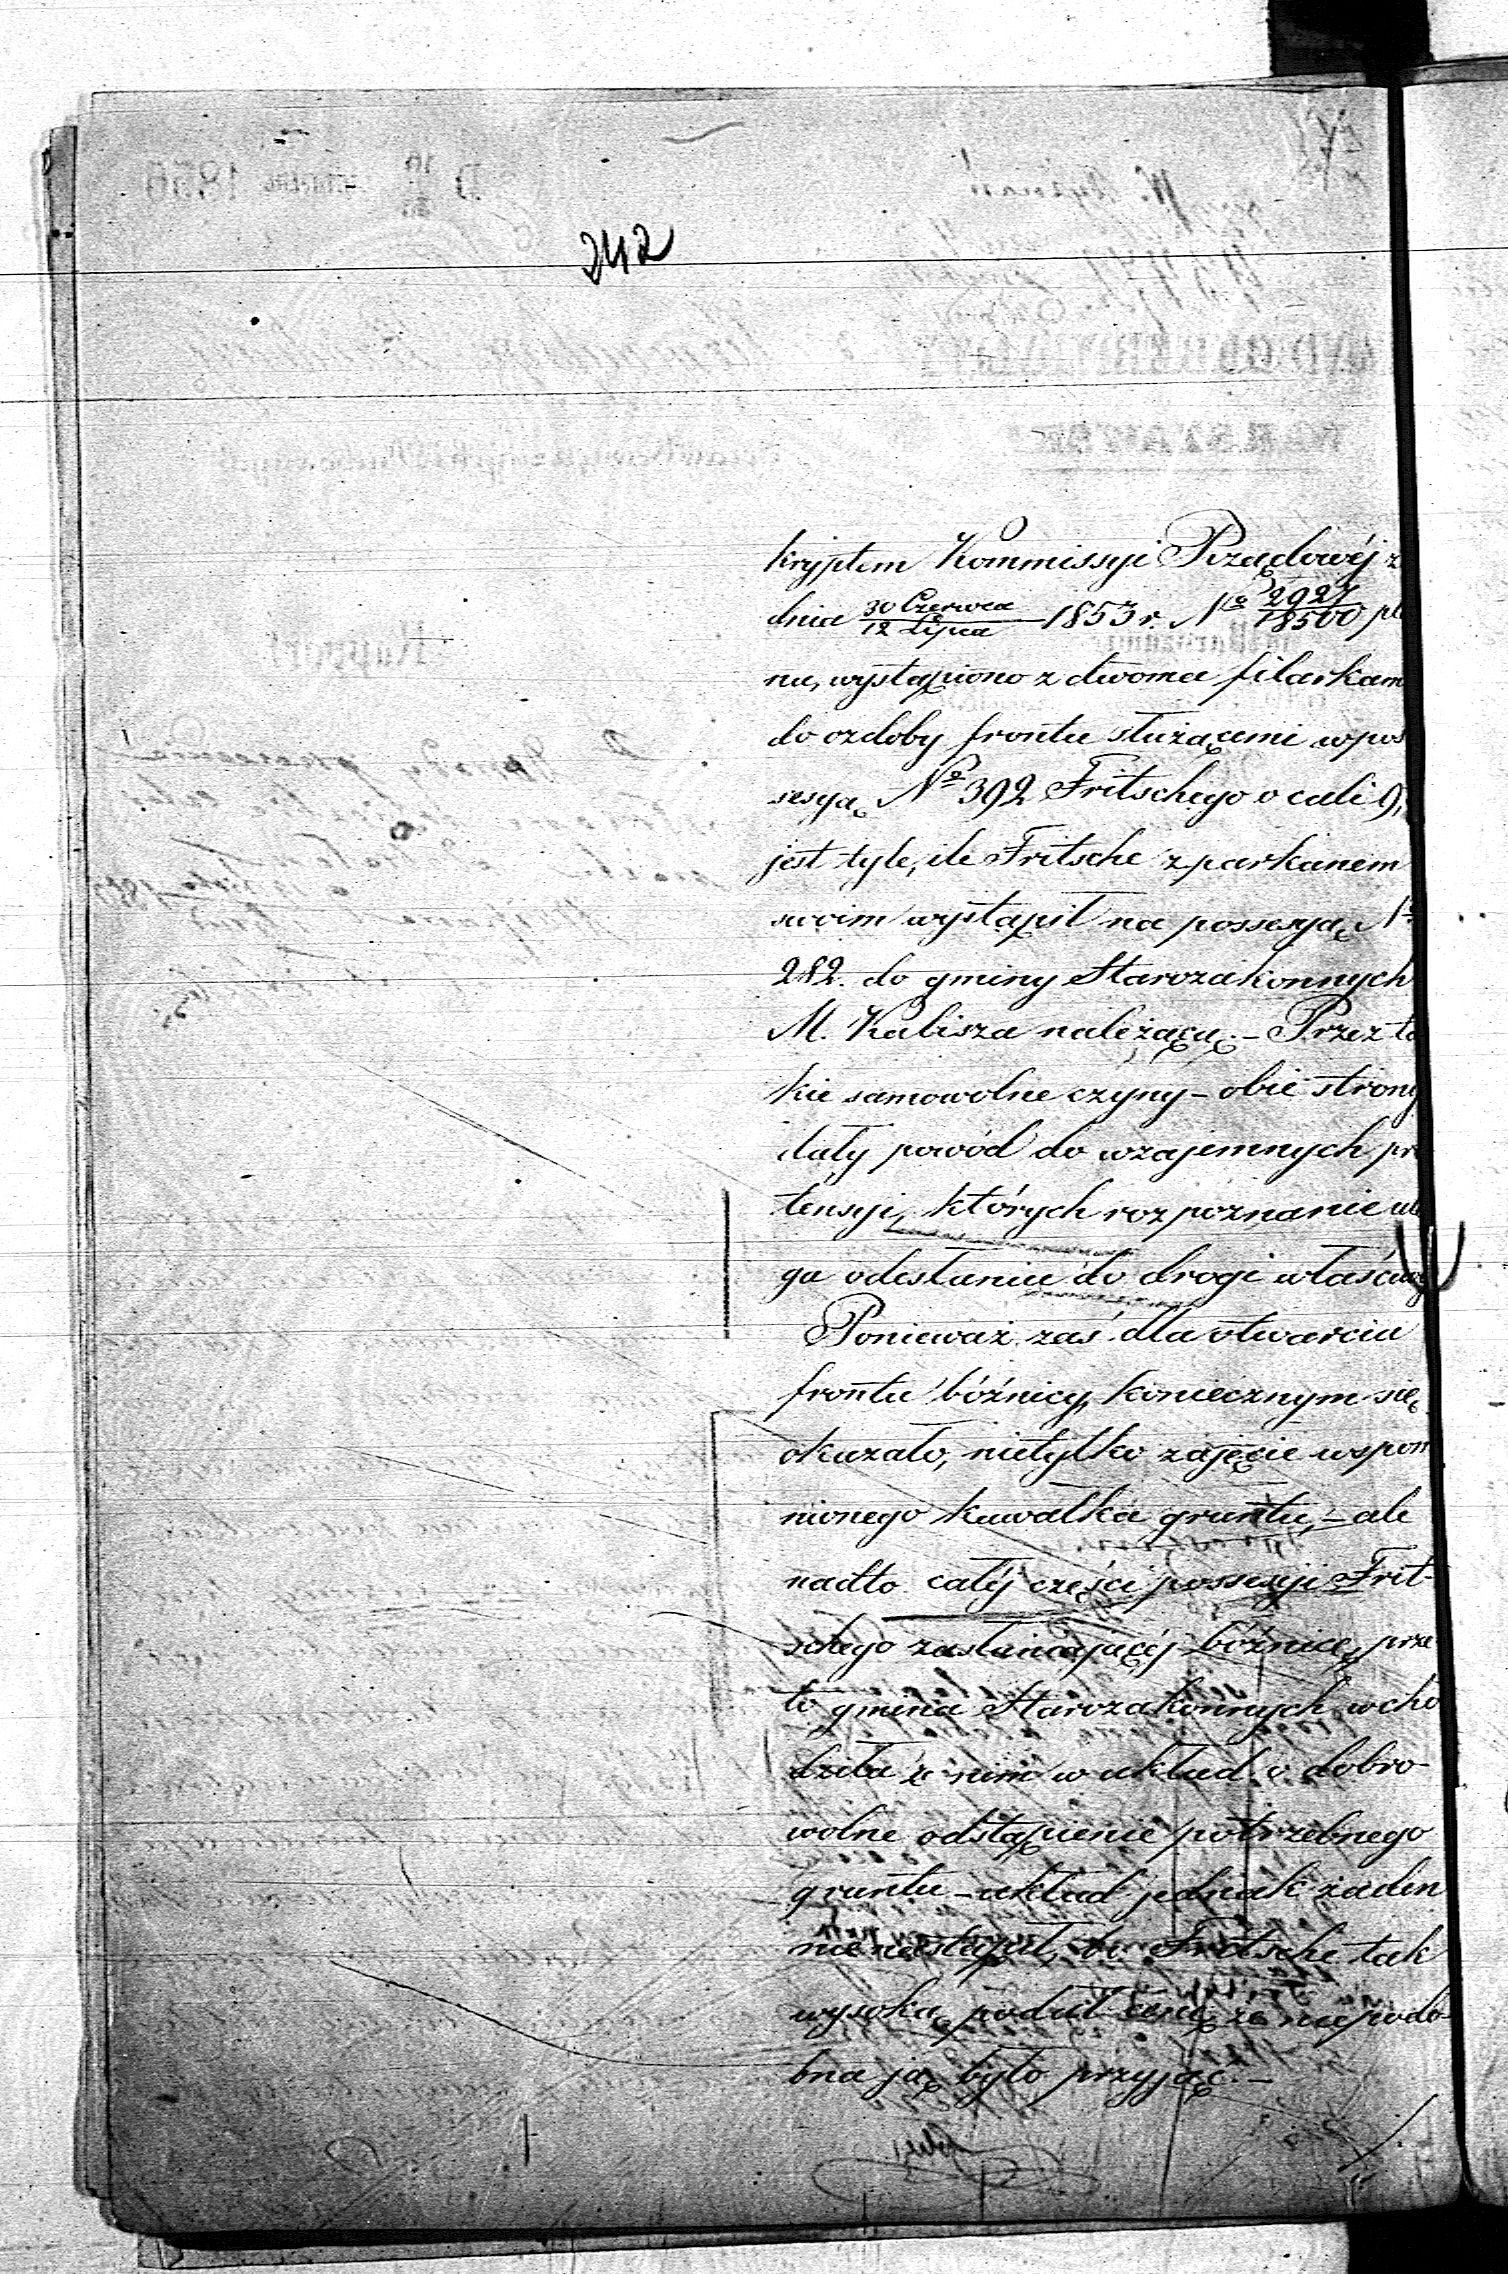 242
kryptem Kommissyi Rządowéj z
dnia 30 Czerwca/12 Lipca 1853 r. No 2927/18500 pla
nu, wystąpiono z dwoma filarkam
do ozdoby frontu służącemi w pos
sesyą No 392 Fritschego o cali 9,
jest tyle, ile Fritsche z parkanem
swoim wystąpił na possesyą No
282. do gminy Starozakonnych
M. Kalisza należącą. – Przez ta
kie samowolne czyny – obie strony
dały powód do wzajemnych pre
tensyi, których rozpoznanie ule
ga odesłaniu do drogi właściwej
Ponieważ zaś dla otwarcia
frontu bóźnicy, koniecznym się
okazało, nietylko zajęcie wspom
nionego kawałka gruntu, – ale
nadto całéj części possesyi Frit-
schego zasłaniającéj bóźnicę, prze
to gmina Starozakonnych wcho
dziła z nim w układ o dobro-
wolne odstąpienie potrzebnego
gruntu – układ jednak żaden
nie nastąpił, bo Fritsche tak
wysoką podał cenę, że niepodo-
bna ją było przyjąć. –